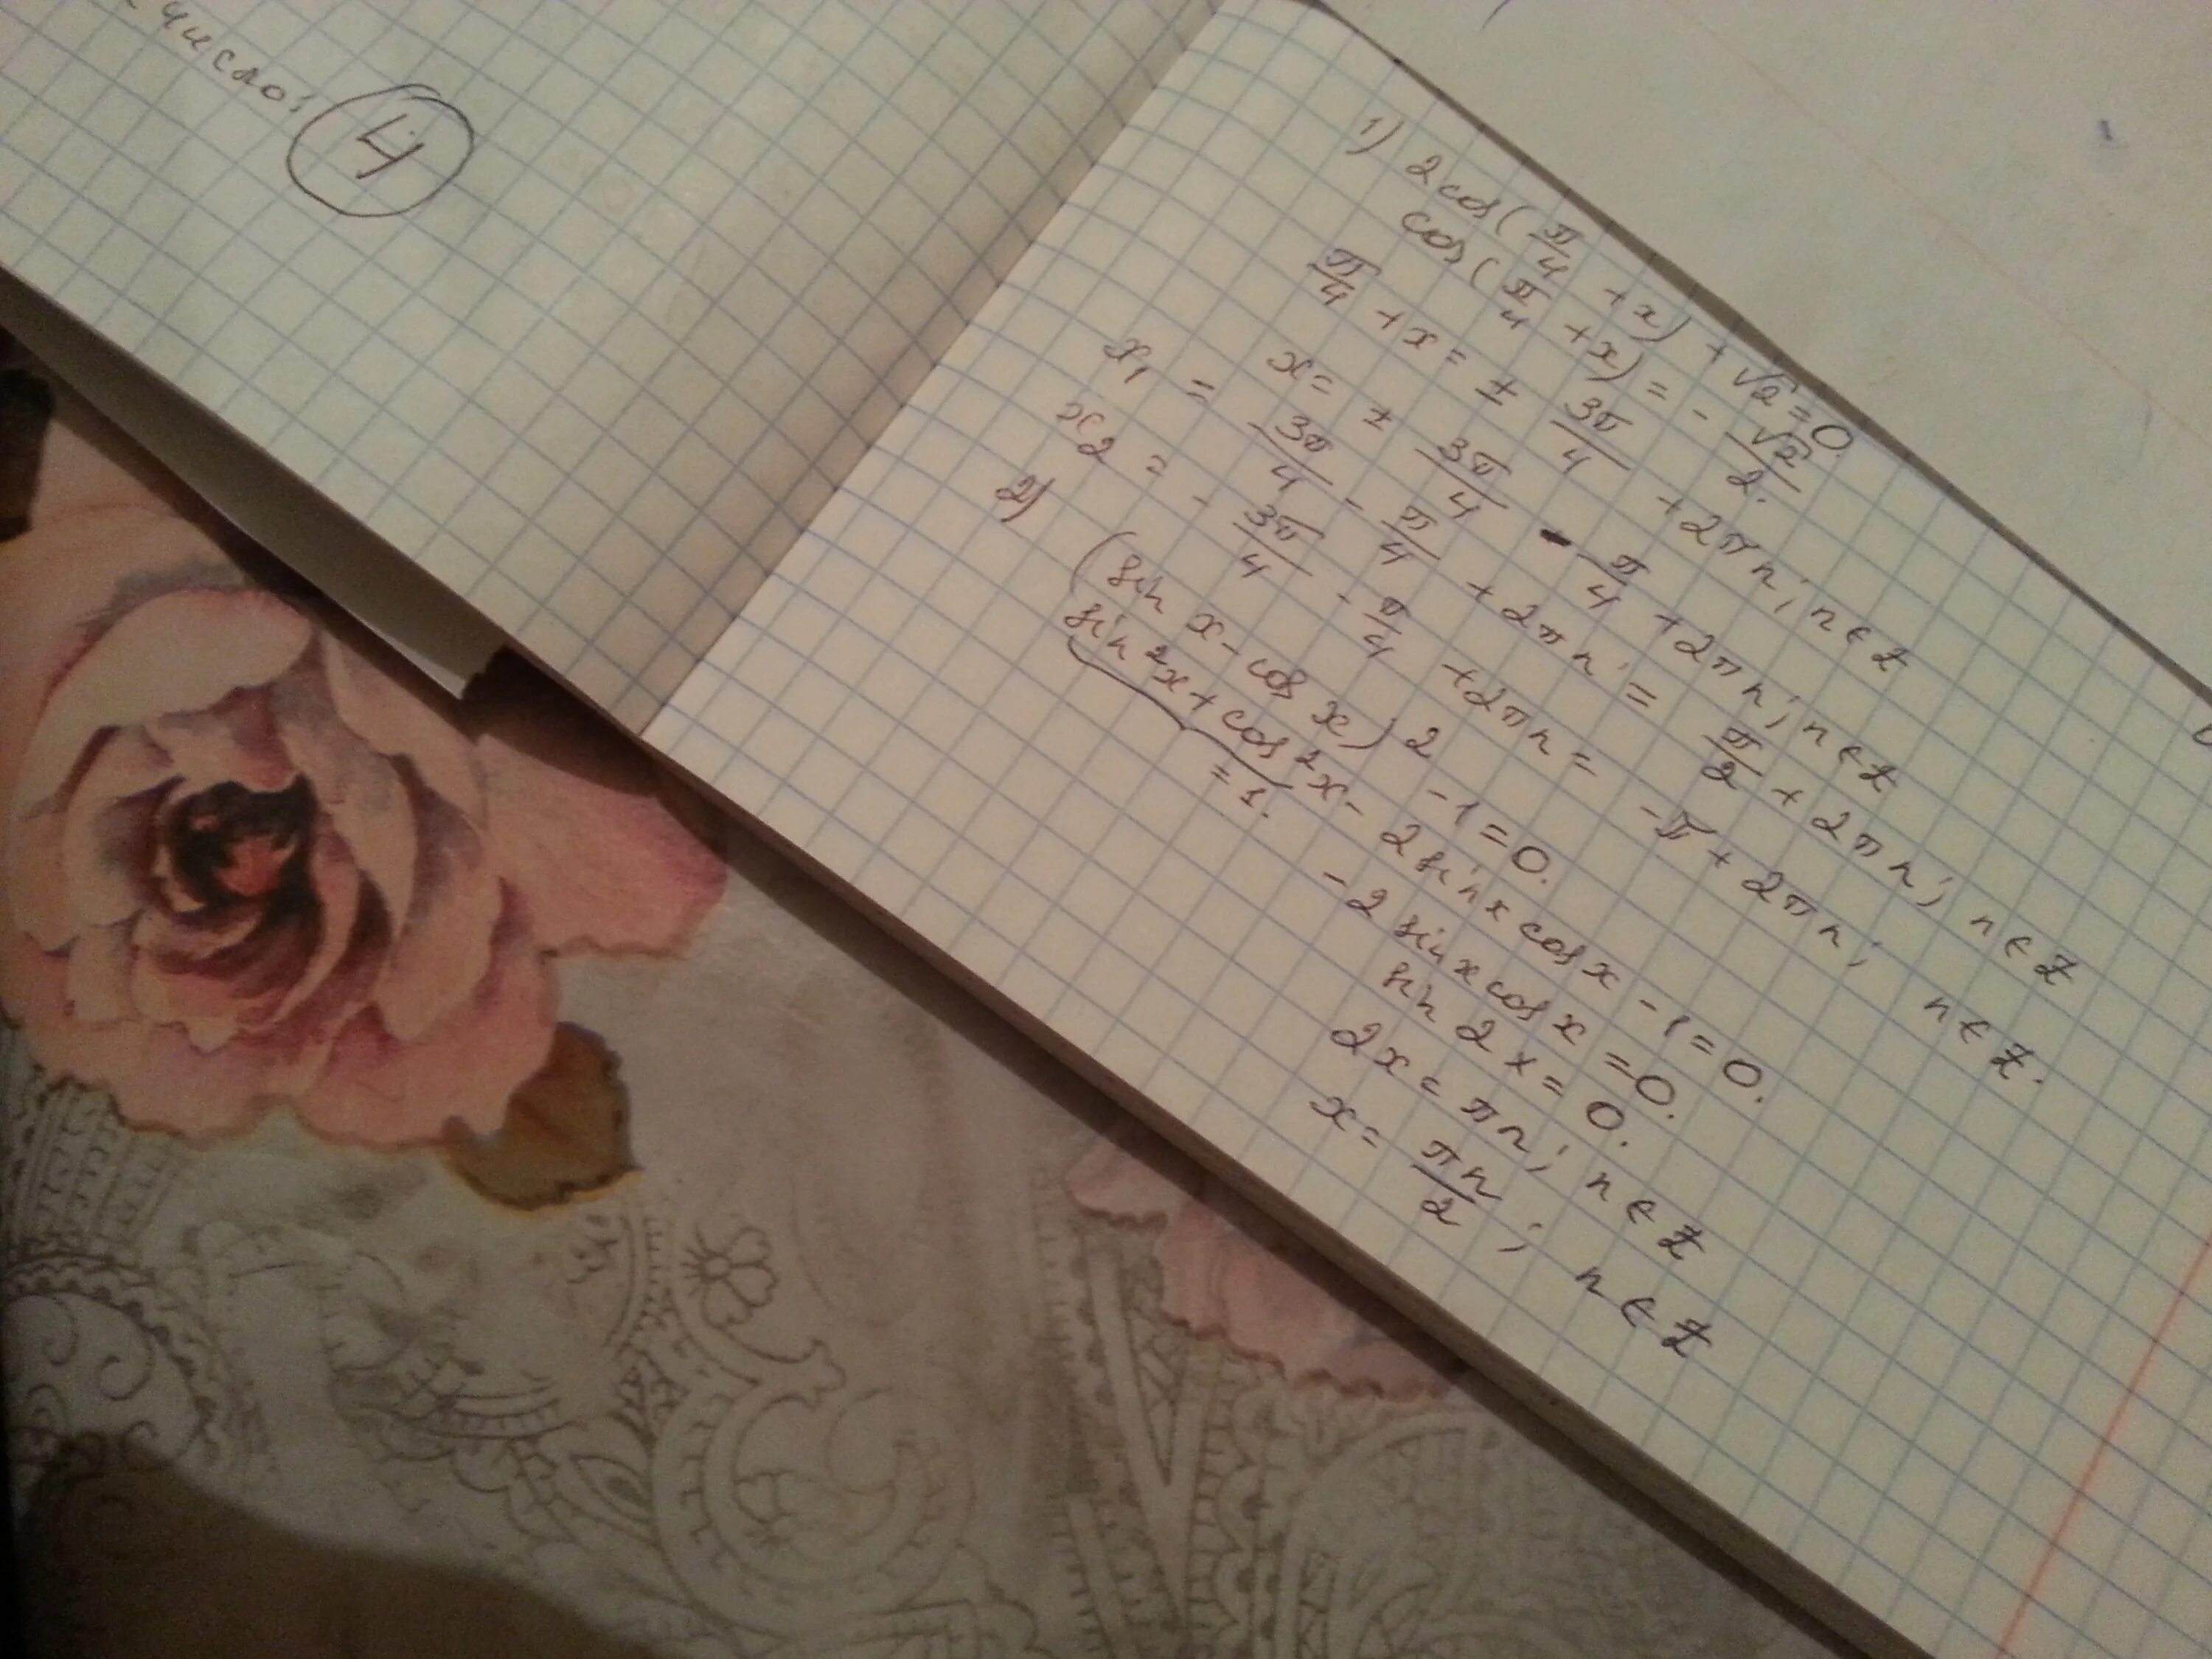 число: 4
1) 2cos(π/4 + x) + √2 = 0.
cos(π/4 + x) = - √2/2.
π/4 + x = ± 3π/4 + 2πn; n ∈ Z
x = ± 3π/4 - π/4 + 2πn; n ∈ Z
x₁ = 3π/4 - π/4 + 2πn = π/2 + 2πn; n ∈ Z
x₂ = - 3π/4 - π/4 + 2πn = -π + 2πn; n ∈ Z.
2) (sin x - cos x)² - 1 = 0.
sin²x + cos²x - 2 sin x cos x - 1 = 0.
= 1.
- 2 sin x cos x = 0.
sin 2x = 0.
2x = πn; n ∈ Z
x = πn/2; n ∈ Z